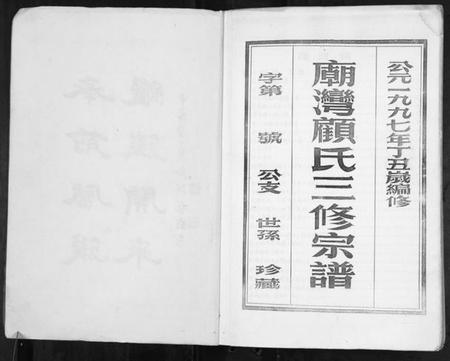 公元一九九七年丁丑歲編修
廟灣顧氏三修宗譜
字第 號 公支 世孫 珍藏